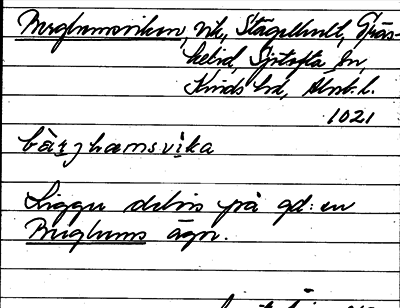 Berghumsviken, vik, Stagelhult, Gräs-
helid, Sjötofta sn,
Kinds hd, Älvsb. l.
1021
bærjhæmsvika
Ligger delvis på gd: en
Berghums ägor.